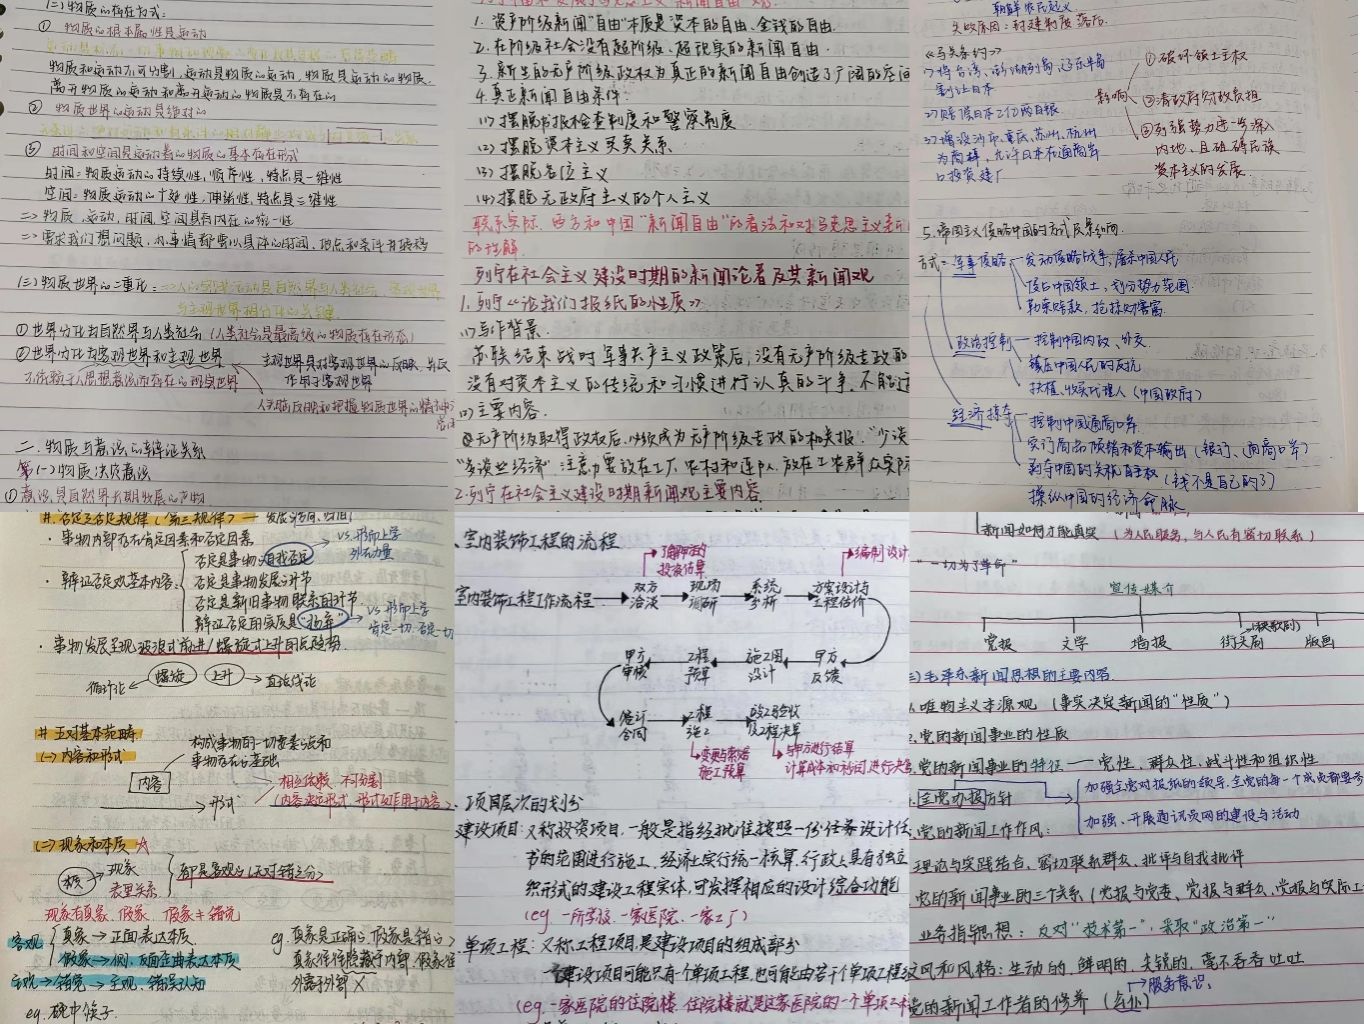 (二)物质的存在方式:
① 物质的根本属性是运动
物质和运动不可分割,运动是物质的运动,物质是运动的物质.
离开物质的运动和离开运动的物质是不存在的
② 物质世界的运动是绝对的
③ 时间和空间是运动着的物质的基本存在形式
时间:物质运动的持续性,顺序性,特点是一维性
空间:物质运动的广延性,伸张性,特点是三维性
=> 物质、运动、时间、空间具有内在的统一性
=> 要求我们想问题,办事情都要以具体的时间、地点和条件为转移
(三)物质世界的二重化:
① 世界分化为自然界与人类社会(人类社会是最高级的物质存在形态)
② 世界分化为客观世界和主观世界
主观世界是对客观世界的反映、并反作用于客观世界
不依赖于人思想意识而存在的现实世界
人头脑反映和把握物质世界的精神
二、物质与意识的辩证关系
(一)物质决定意识
① 意识是自然界长期发展的产物
1. 资产阶级新闻"自由"本质是资本的自由、金钱的自由.
2. 在阶级社会没有超阶级、超现实的新闻自由.
3. 新生的无产阶级政权为真正的新闻自由创造了广阔的空间
4. 真正新闻自由条件:
(1) 摆脱书报检查制度和警察制度
(2) 摆脱资本主义买卖关系
(3) 摆脱名位主义
(4) 摆脱无政府主义的个人主义
联系实际、西方和中国"新闻自由"的看法和对马克思主义新
的理解.
列宁在社会主义建设时期的新闻论著及其新闻观
1. 列宁《论我们报纸的性质》
(1) 写作背景.
苏联结束战时军事共产主义政策后,没有无产阶级专政的
没有对资本主义的传统和习惯进行认真的斗争,不能
(2) 主要内容.
无产阶级取得政权后,必须成为无产阶级专政的机关报."少谈
"多谈些经济"注意力要放在工厂、农村和连队,放在工农群众实际
2. 列宁在社会主义建设时期新闻观主要内容
朝鲜农民起义
失败原因:封建制度落后.
《马关条约》
1) 将台湾、澎湖列岛、辽东半岛
割让日本
2) 赔偿日本2亿两白银
3) 增设沙市、重庆、苏州、杭州
为商埠,允许日本在通商岸
口投资建厂
影响
① 破坏领土主权
② 清政府财政负担
③ 列强势力进一步深入
内地,且阻碍民族
资本主义的发展.
5. 帝国主义侵略中国的方式及影响.
方式:军事侵略 发动侵略战争,屠杀中国人民
侵占中国领土,划分势力范围
勒索赔款,抢掠财富
政治控制 控制中国内政、外交.
镇压中国人民的反抗
扶植、收买代理人(中国政府)
经济掠夺 控制中国通商口岸.
实行商品倾销和资本输出(银行、通商口岸)
剥夺中国的关税自主权(钱不是自己的了)
操纵中国的经济命脉
#.否定之否定规律(第三规律)—发展方向、归宿
· 事物内部存在肯定因素和否定因素
· 辩证否定观基本内容:
否定是事物自我否定 vs.形而上学
外在力量
否定是事物发展的环节
否定是新旧事物联系的环节
辩证否定的实质是"扬弃" vs 形而上学
肯定一切.否定一切
· 事物发展呈现波浪式前进/螺旋式上升的总趋势.
循环论 ← 螺旋 上升 → 直线论
# 五对基本范畴
(一)内容和形式
构成事物的一切要素总和
事物存在的基础
内容
形式
相互依赖、不可分割
(内容决定形式,形式反作用于内容)
(二)现象和本质 ☆
本质 → 现象
表里关系.
都是客观的(无对错之分)
现象有真象、假象、假象≠错觉
客观 真象 → 正面表达本质.
假象 → 侧、反面歪曲表达本质
主观 → 错觉 → 主观、错误认知
eg. 真象是正确的,假象是错的
真象往往隐藏于内部,假象往
外露于外部 ×
eg. 碗中筷子.
、室内装饰工程的流程
了解甲方的
投资估算
编制设计
室内装饰工程工作流程 → 双方洽谈 → 现场调研 → 系统分析 → 方案设计与工程估价
甲方审核 ← 工程预算 ← 施工图设计 ← 甲方反馈
签订合同 → 工程施工 → 竣工验收及工程决算
变更与索赔
施工预算
与甲方进行结算
计算成本和利润进行决算
、项目层次的划分
建设项目:又称投资项目,一般是指经批准按照一份任务设计任
书的范围进行施工、经济上实行统一核算,行政上具有独立
织形式的建设工程实体,可发挥相应的设计综合功能
(eg. 一所学校、一家医院、一家工厂)
单项工程:又称工程项目,是建设项目的组成部分
一建设项目可能只有一个单项工程,也可能由若干个单项工程
(eg. 一家医院的住院楼,住院楼就是这家医院的一个单项工程
新闻如何才能真实(为人民服务,与人民有密切联系)
"一切为了革命"
宣传媒介
党报 文学 墙报 街头剧(秧歌剧) 版画
毛泽东新闻思想的主要内容.
唯物主义本源观(事实决定新闻的"性质")
党的新闻事业的性质
党的新闻事业的特征 —— 党性、群众性、战斗性和组织性
全党办报方针
加强全党对报纸的领导,全党的每一个成员都要
加强、开展通讯员网的建设与活动
党的新闻工作作风:
理论与实践结合、密切联系群众、批评与自我批评
党的新闻事业的三个关系(党报与党委、党报与群众、党报与实际工
业务指导思想:反对"技术第一",采取"政治第一"
文风和风格:生动的、鲜明的、尖锐的、毫不吞吞吐吐
服务意识.
党的新闻工作者的修养